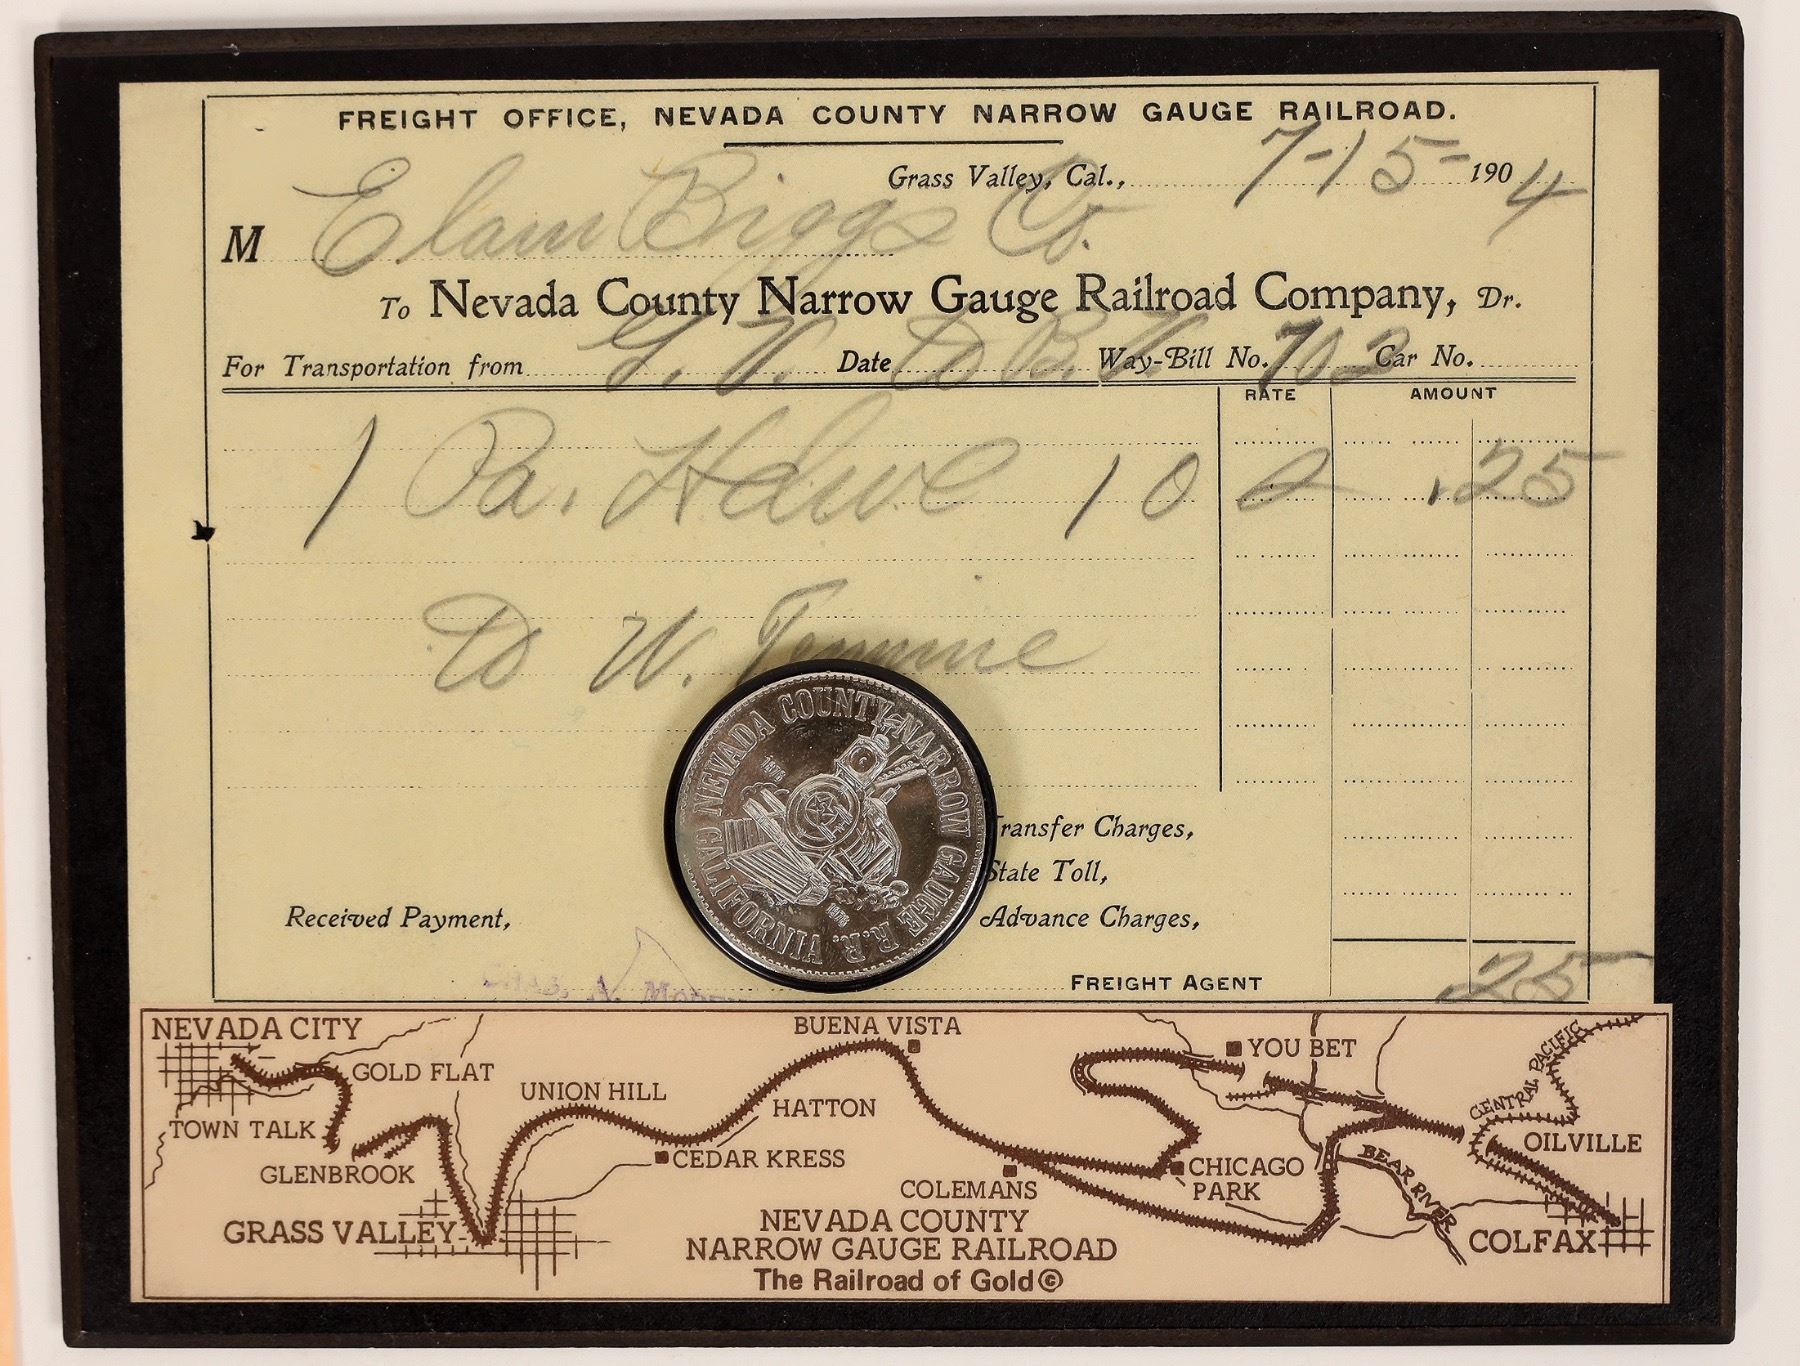 FREIGHT OFFICE, NEVADA COUNTY NARROW GAUGE RAILROAD.
Grass Valley, Cal., 7-15- 1904
M Elam Biggs Co.
To Nevada County Narrow Gauge Railroad Company, Dr.
For Transportation from G. V. Date to B. V. Way-Bill No. 703 Car No.
RATE AMOUNT
1 Pa. Hdwe 10 2 .25
to W.
NEVADA COUNTY NARROW GAUGE R.R. CALIFORNIA
1876
Transfer Charges,
State Toll,
Received Payment,
Advance Charges,
CHAS. A.
FREIGHT AGENT
25
NEVADA CITY
BUENA VISTA
YOU BET
CENTRAL PACIFIC
GOLD FLAT
UNION HILL
HATTON
TOWN TALK
OILVILLE
GLENBROOK
CEDAR KRESS
CHICAGO PARK
BEAR RIVER
COLEMANS
GRASS VALLEY
COLFAX
NEVADA COUNTY
NARROW GAUGE RAILROAD
The Railroad of Gold©